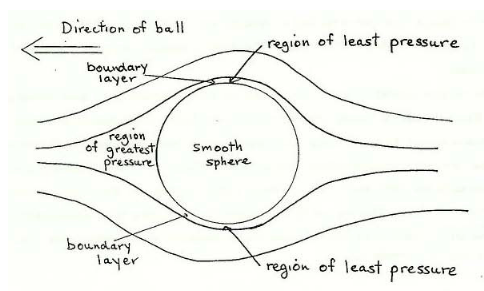 Direction of ball
region of least pressure
boundary
layer
region
of greatest
pressure
smooth
sphere
boundary
layer
region of least pressure